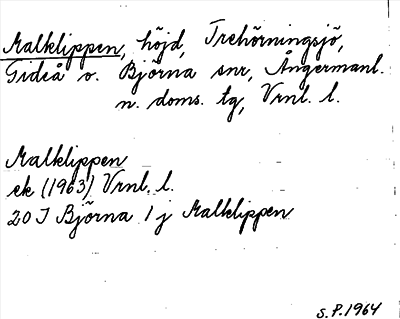 Malklippen, höjd, Trehörningsjö,
Gideå o. Björna snr, Ångermanl.
n. doms. tg, Vrnl. l.
Malklippen
ek (1963) Vrnl. l.
20 I Björna 1 j Malklippen
S.P.1964